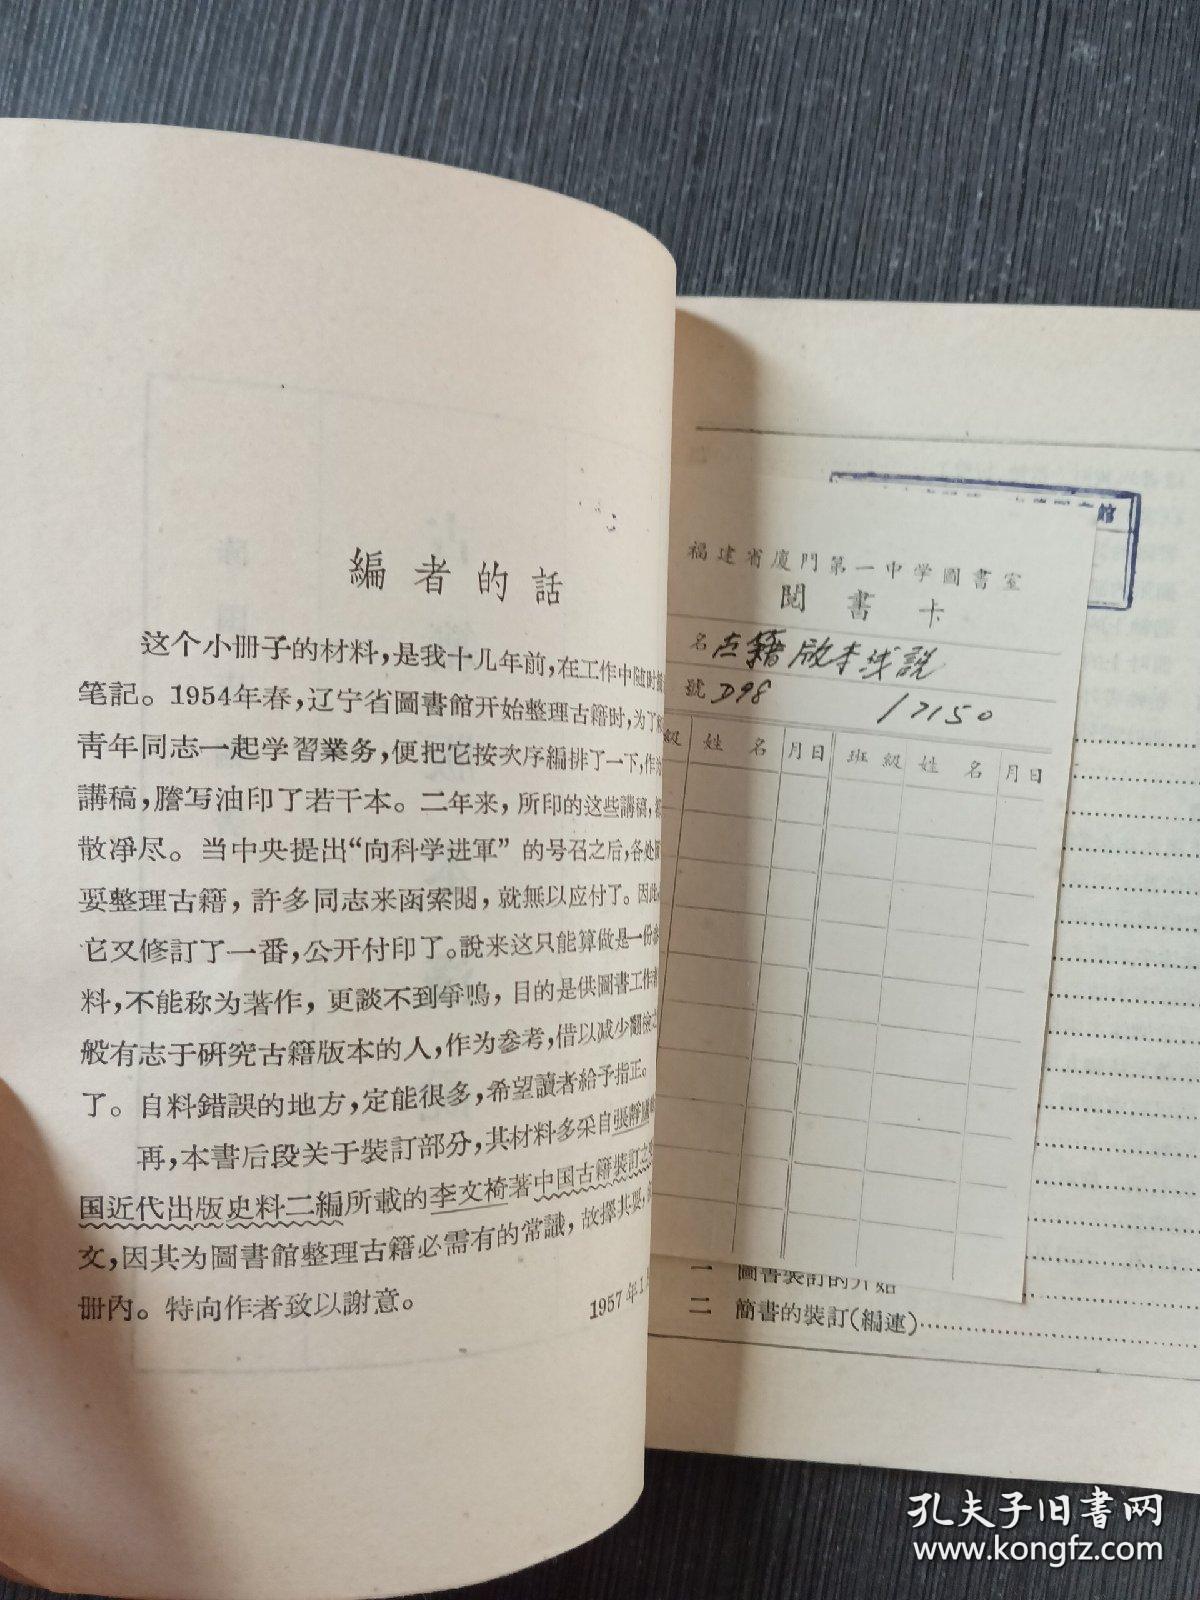 編者的話
这个小册子的材料，是我十几年前，在工作中随时
笔記。1954年春，辽宁省圖書館开始整理古籍时，为了
青年同志一起学習業务，便把它按次序編排了一下，作
講稿，謄写油印了若干本。二年来，所印的这些講稿，
散凈尽。当中央提出“向科学进軍”的号召之后，各处
要整理古籍，許多同志来函索閱，就無以应付了。因此，
它又修訂了一番，公开付印了。說来这只能算做是一份
料，不能称为著作，更談不到爭鳴，目的是供圖書工作
般有志于硏究古籍版本的人，作为参考，借以减少翻檢之
了。自料錯誤的地方，定能很多，希望讀者給予指正。
再，本書后段关于裝訂部分，其材料多采自張靜廬
国近代出版史料二編所載的李文裿著中国古籍裝訂之
文，因其为圖書館整理古籍必需有的常識，故擇其要，
册內。特向作者致以謝意。
1957年1
館
福建省廈門第一中学圖書室
閱書卡
名 古籍版本浅説
號 D98 17150
級 姓名 月日 班級 姓名 月日
一 圖書裝訂的介紹
二 簡書的裝訂(編連)
孔夫子旧书网
www.kongfz.com